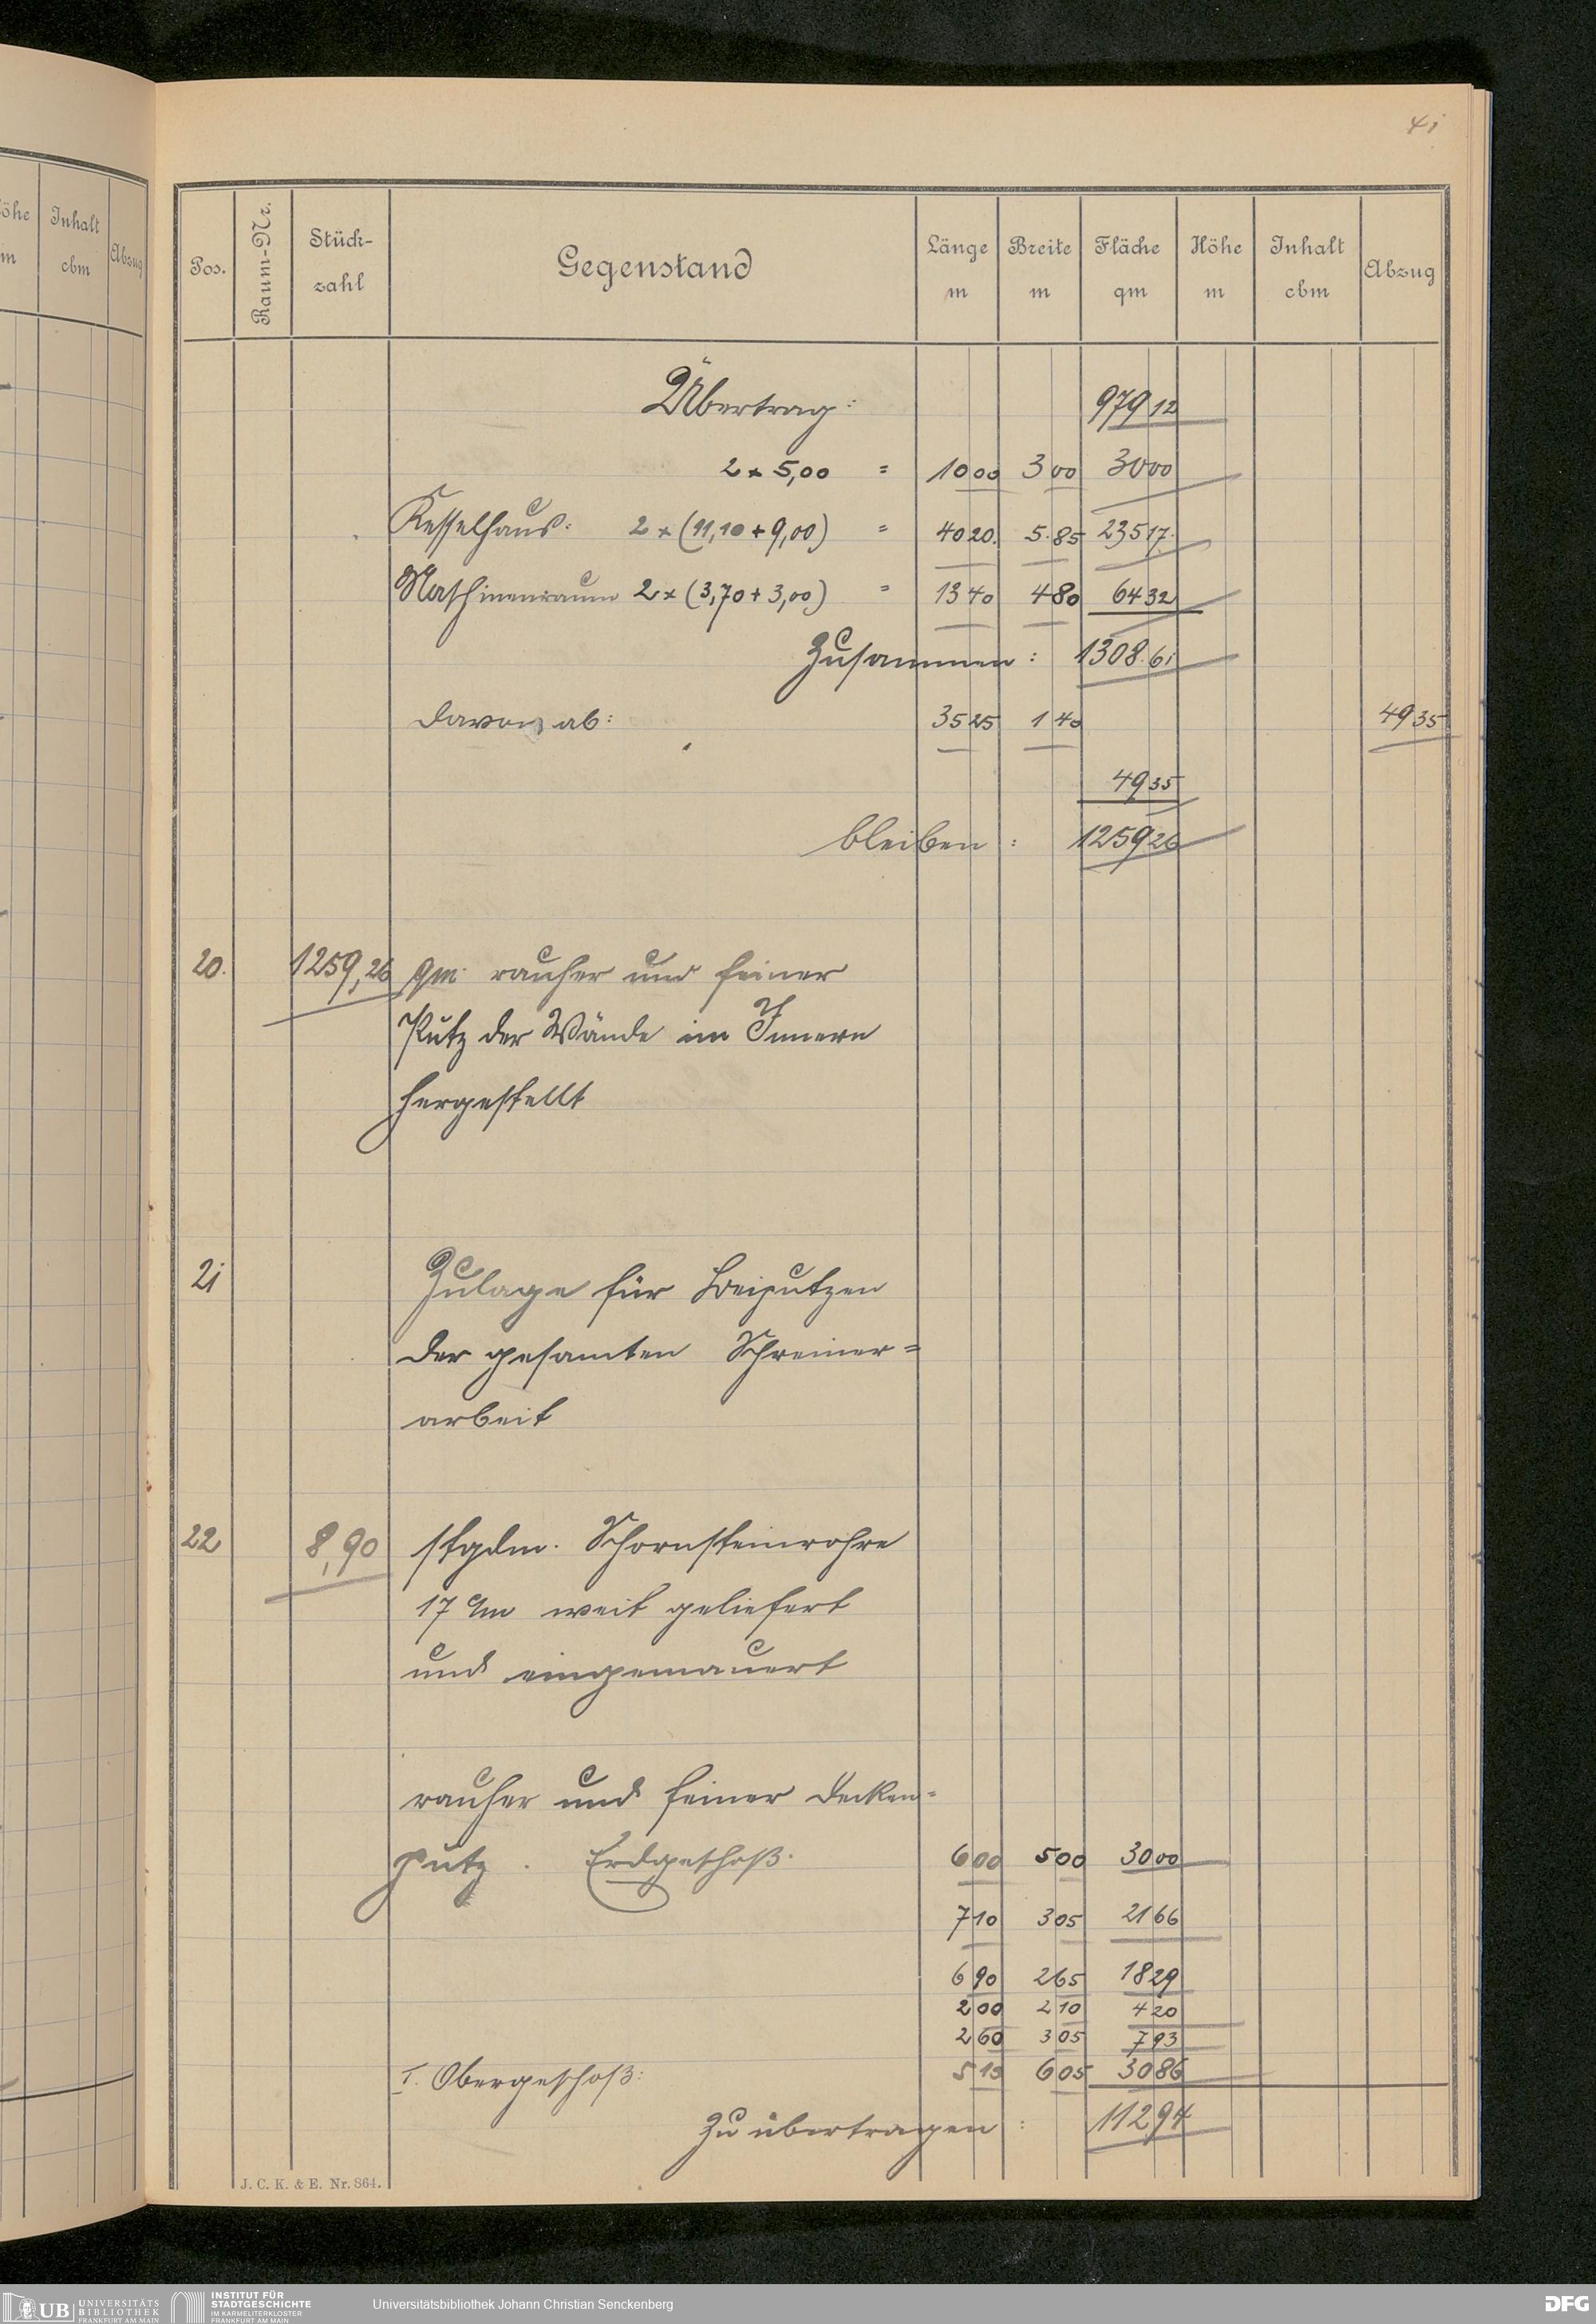 41
öhe Inhalt Abzug
m cbm
Pos. Raum-Nr. Stück-zahl Gegenstand Länge m Breite m Fläche qm Höhe m Inhalt cbm Abzug
Übertrag: 979 12
2 × 5,00 = 10 00 3 00 30 00
Kesselhaus: 2 × (11,10 + 9,00) = 40 20. 5.85 235 17.
Maschinenraum 2 × (3,70 + 3,00) = 13 40 4 80 64 32
Zusammen: 1308.61
davon ab: 35 25 1 40 49 35
49 35
bleiben: 1259 26
20. 1259,26 qm. rauher und feiner
Putz der Wände im Innern
hergestellt
21 Zulage für Beiputzen
der gesamten Schreiner=
arbeit
22 8,90 stgdm. Schornsteinrohre
17 c/m weit geliefert
und eingemauert
rauher und feiner Decken=
putz. Erdgeschoß. 6 00 5 00 30 00
7 10 3 05 21 66
6 90 2 65 18 29
2 00 2 10 4 20
2 60 3 05 7 93
I. Obergeschoß: 6 05 30 86
Zu übertragen: 112 94
J. C. K. & E. Nr. 864.
UB UNIVERSITÄTS
BIBLIOTHEK
FRANKFURT AM MAIN
INSTITUT FÜR
STADTGESCHICHTE
IM KARMELITERKLOSTER
FRANKFURT AM MAIN
Universitätsbibliothek Johann Christian Senckenberg
DFG